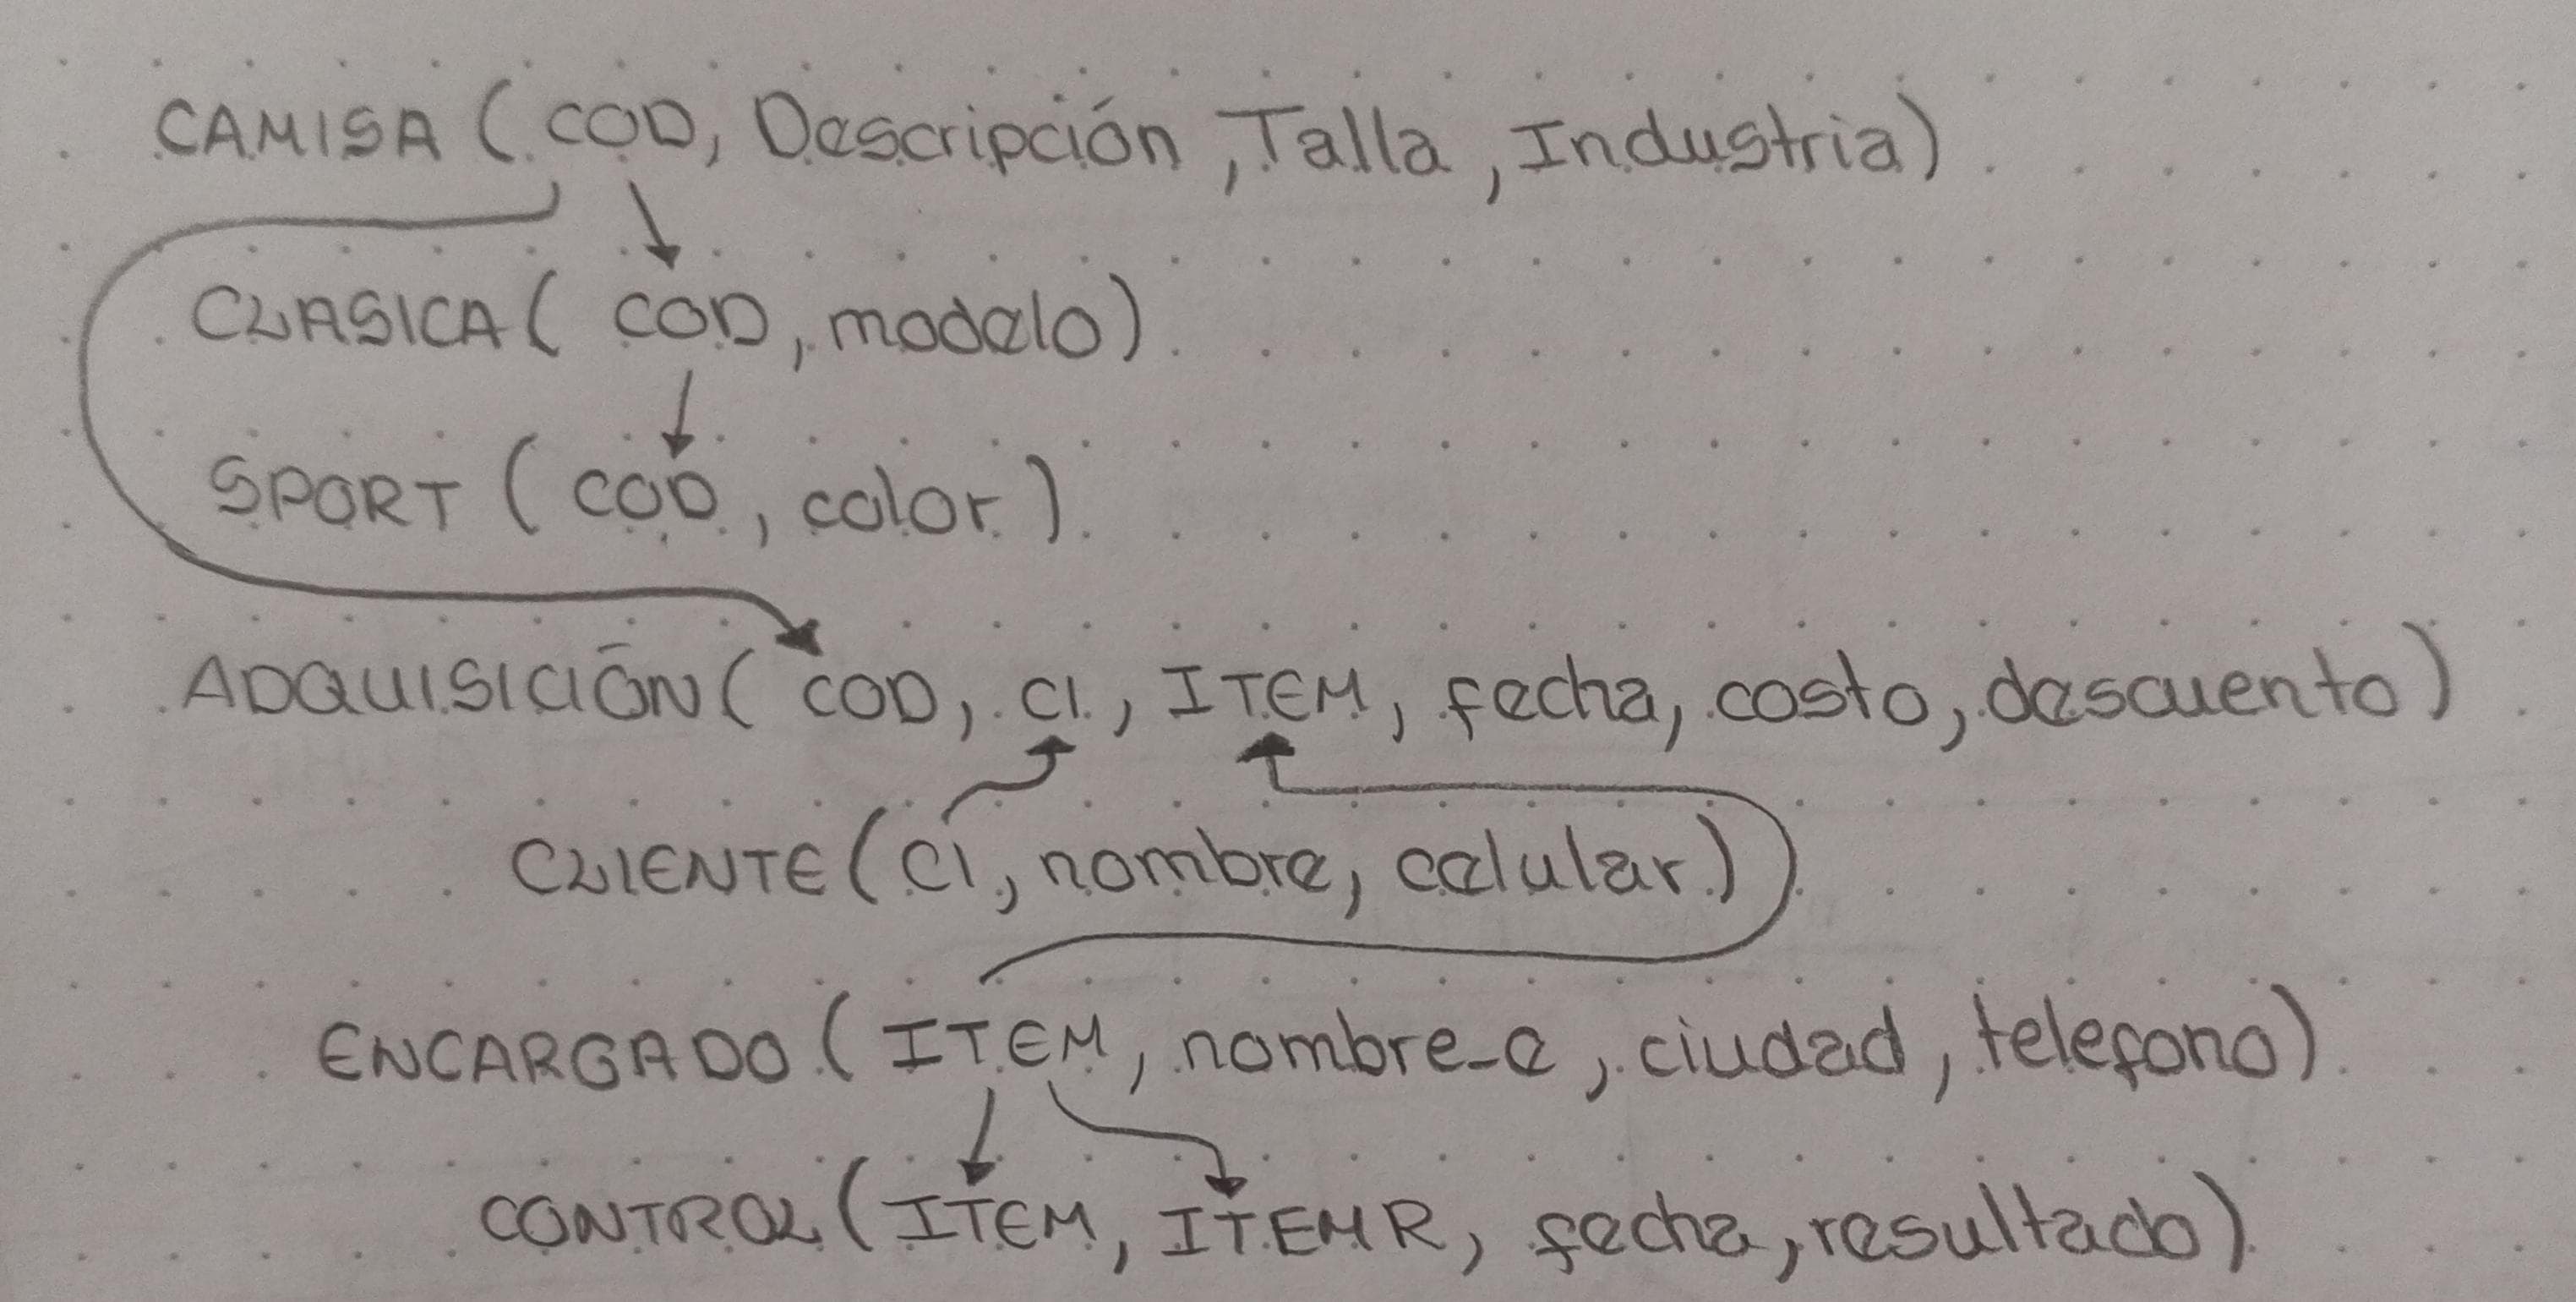 CAMISA (COD, Descripción, Talla, Industria)
CLASICA (COD, modelo)
SPORT (COD, color)
ADQUISICIÓN (COD, CI, ITEM, fecha, costo, descuento)
CLIENTE (CI, nombre, celular)
ENCARGADO (ITEM, nombre_e, ciudad, telefono)
CONTROL (ITEM, ITEMR, fecha, resultado)